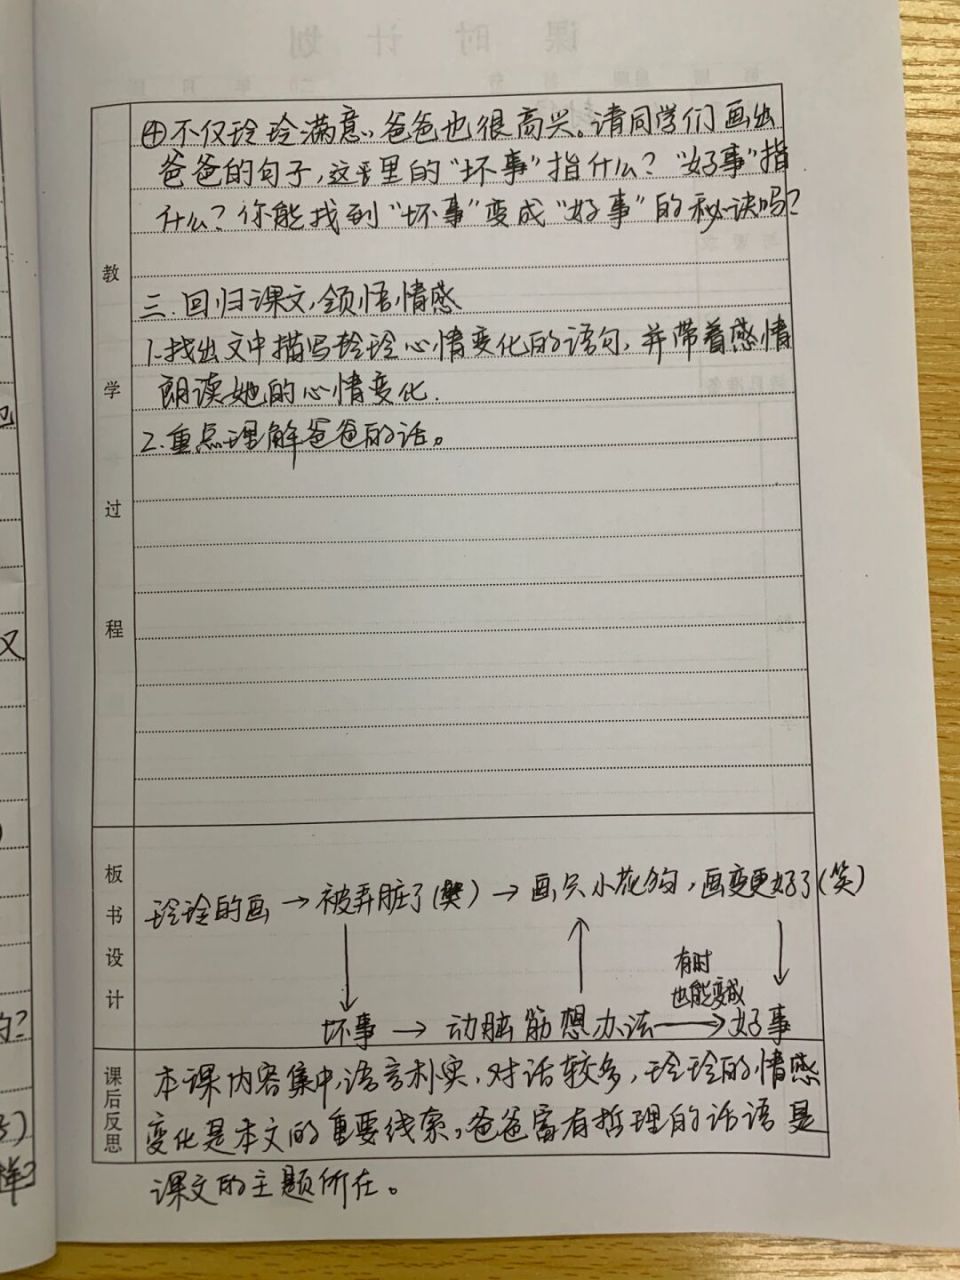 ④不仅玲玲满意,爸爸也很高兴。请同学们画出
爸爸的句子,这里的"坏事"指什么?"好事"指
什么?你能找到"坏事"变成"好事"的秘诀吗?
三.回归课文,领悟情感
1.找出文中描写玲玲心情变化的语句,并带着感情
朗读她的心情变化.
2.重点理解爸爸的话。
教学过程
板书设计
玲玲的画→被弄脏了(哭)→画只小花狗,画变更好了(笑)
有时
也能变成
坏事→动脑筋想办法→好事
课后反思
本课内容集中,语言朴实,对话较多,玲玲的情感
变化是本文的重要线索,爸爸富有哲理的话语是
课文的主题所在。
又
样?